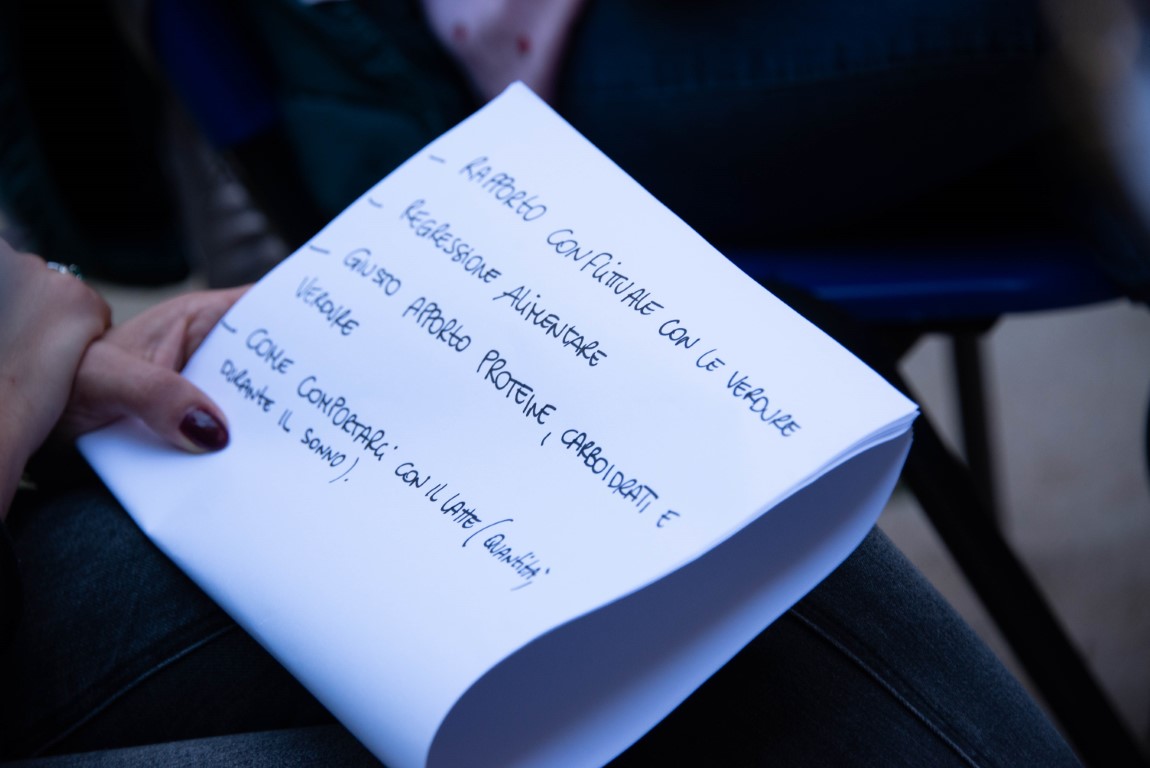 - RAPPORTO CONFLITTUALE CON LE VERDURE
- REGRESSIONE ALIMENTARE
- GIUSTO APPORTO PROTEINE, CARBOIDRATI, E
VERDURE
- COME COMPORTARCI CON IL LATTE (QUANTITÀ,
DURANTE IL SONNO).